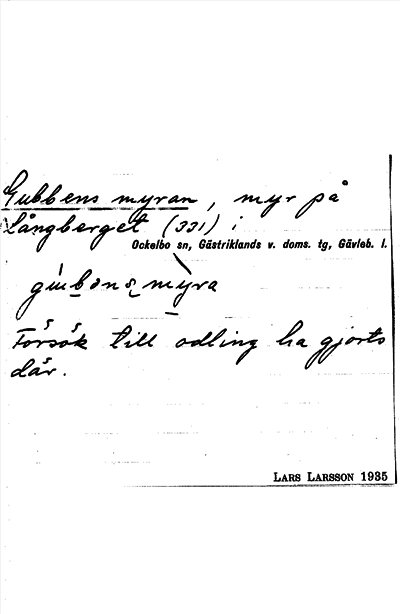 Gubbens myran, myr på
Långberget (331) i
Ockelbo sn, Gästriklands v. doms. tg, Gävleb. l.
myra
Försök till odling ha gjorts
där.
LARS LARSSON 1935